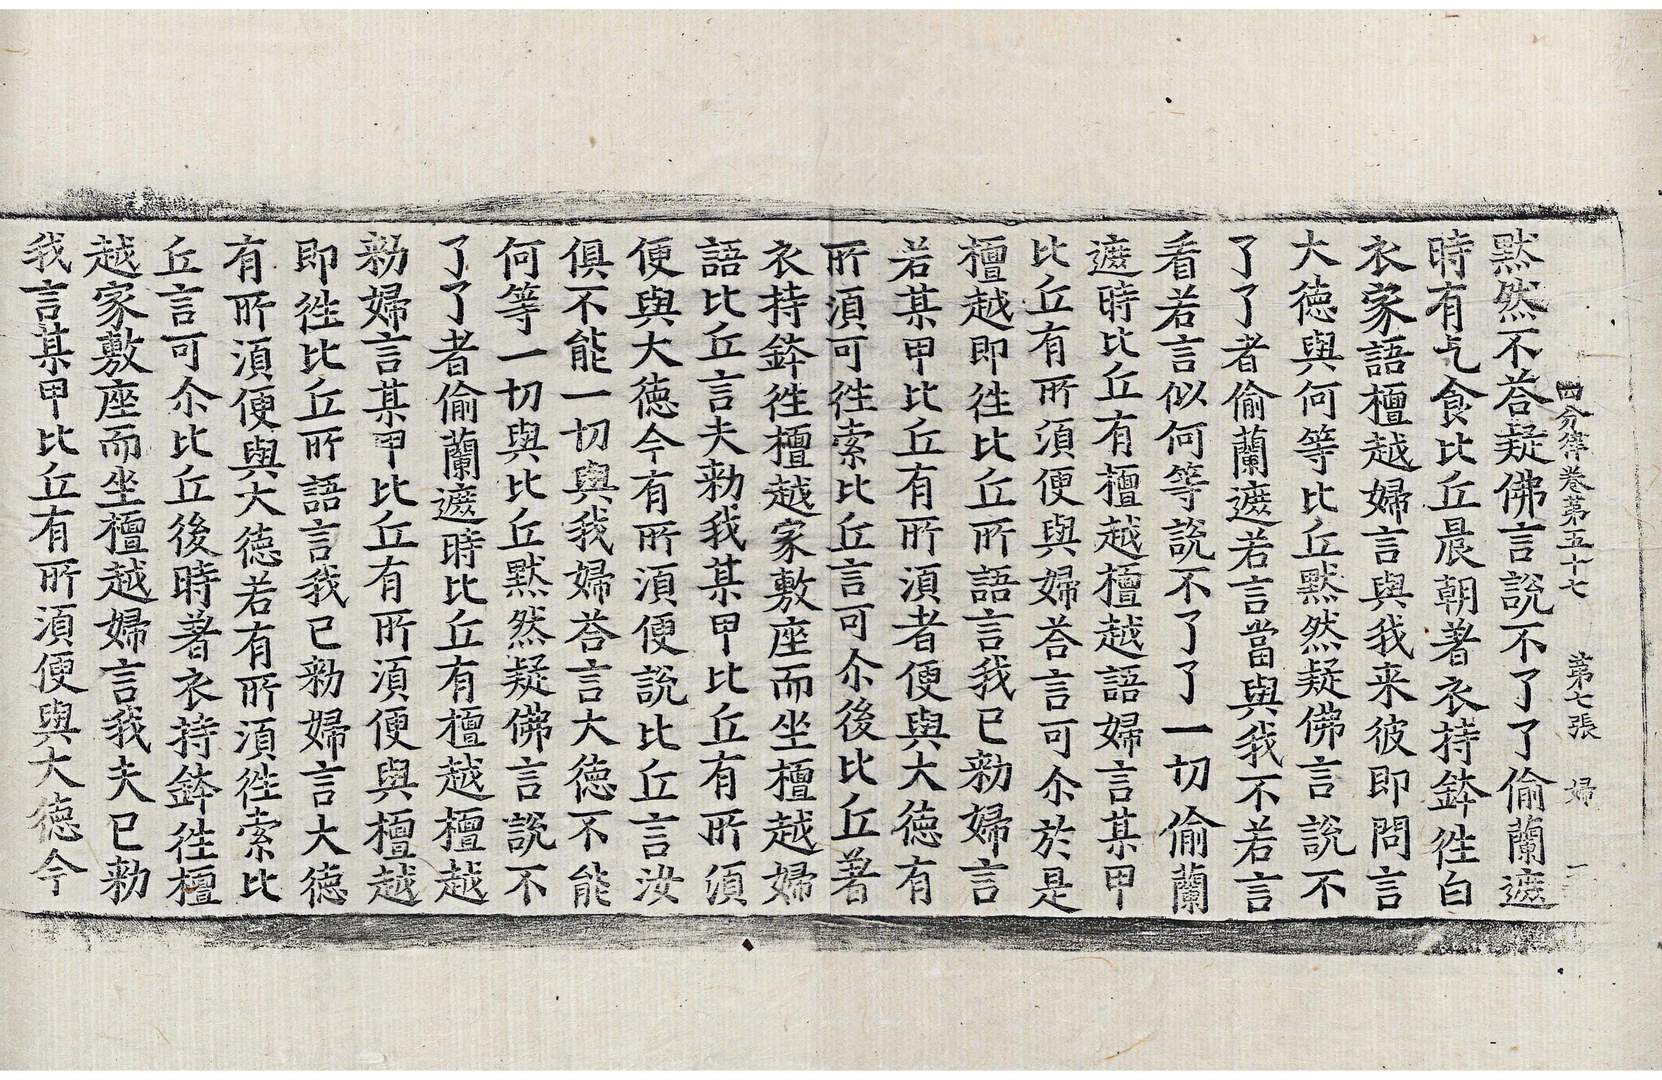 四分律卷第五十七 第七張 婦
黙然不荅疑佛言說不了了偷蘭遮
時有乞食比丘晨朝著衣持鉢徃白
衣家語檀越婦言與我来彼即問言
大德與何等比丘黙然疑佛言說不
了了者偷蘭遮若言當與我不若言
看若言似何等說不了了一切偷蘭
遮時比丘有檀越檀越語婦言某甲
比丘有所湏便與婦荅言可尒於是
檀越即徃比丘所語言我已勑婦言
若某甲比丘有所湏者便與大德有
所湏可徃索比丘言可尒後比丘著
衣持鉢徃檀越家敷座而坐檀越婦
語比丘言夫勑我某甲比丘有所湏
便與大德今有所湏便說比丘言汝
俱不能一切與我婦荅言大德不能
何等一切與比丘黙然疑佛言說不
了了者偷蘭遮時比丘有檀越檀越
勑婦言某甲比丘有所湏便與檀越
即徃比丘所語言我已勑婦言大德
有所湏便與大德若有所湏徃索比
丘言可尒比丘後時著衣持鉢徃檀
越家敷座而坐檀越婦言我夫已勑
我言某甲比丘有所湏便與大德今